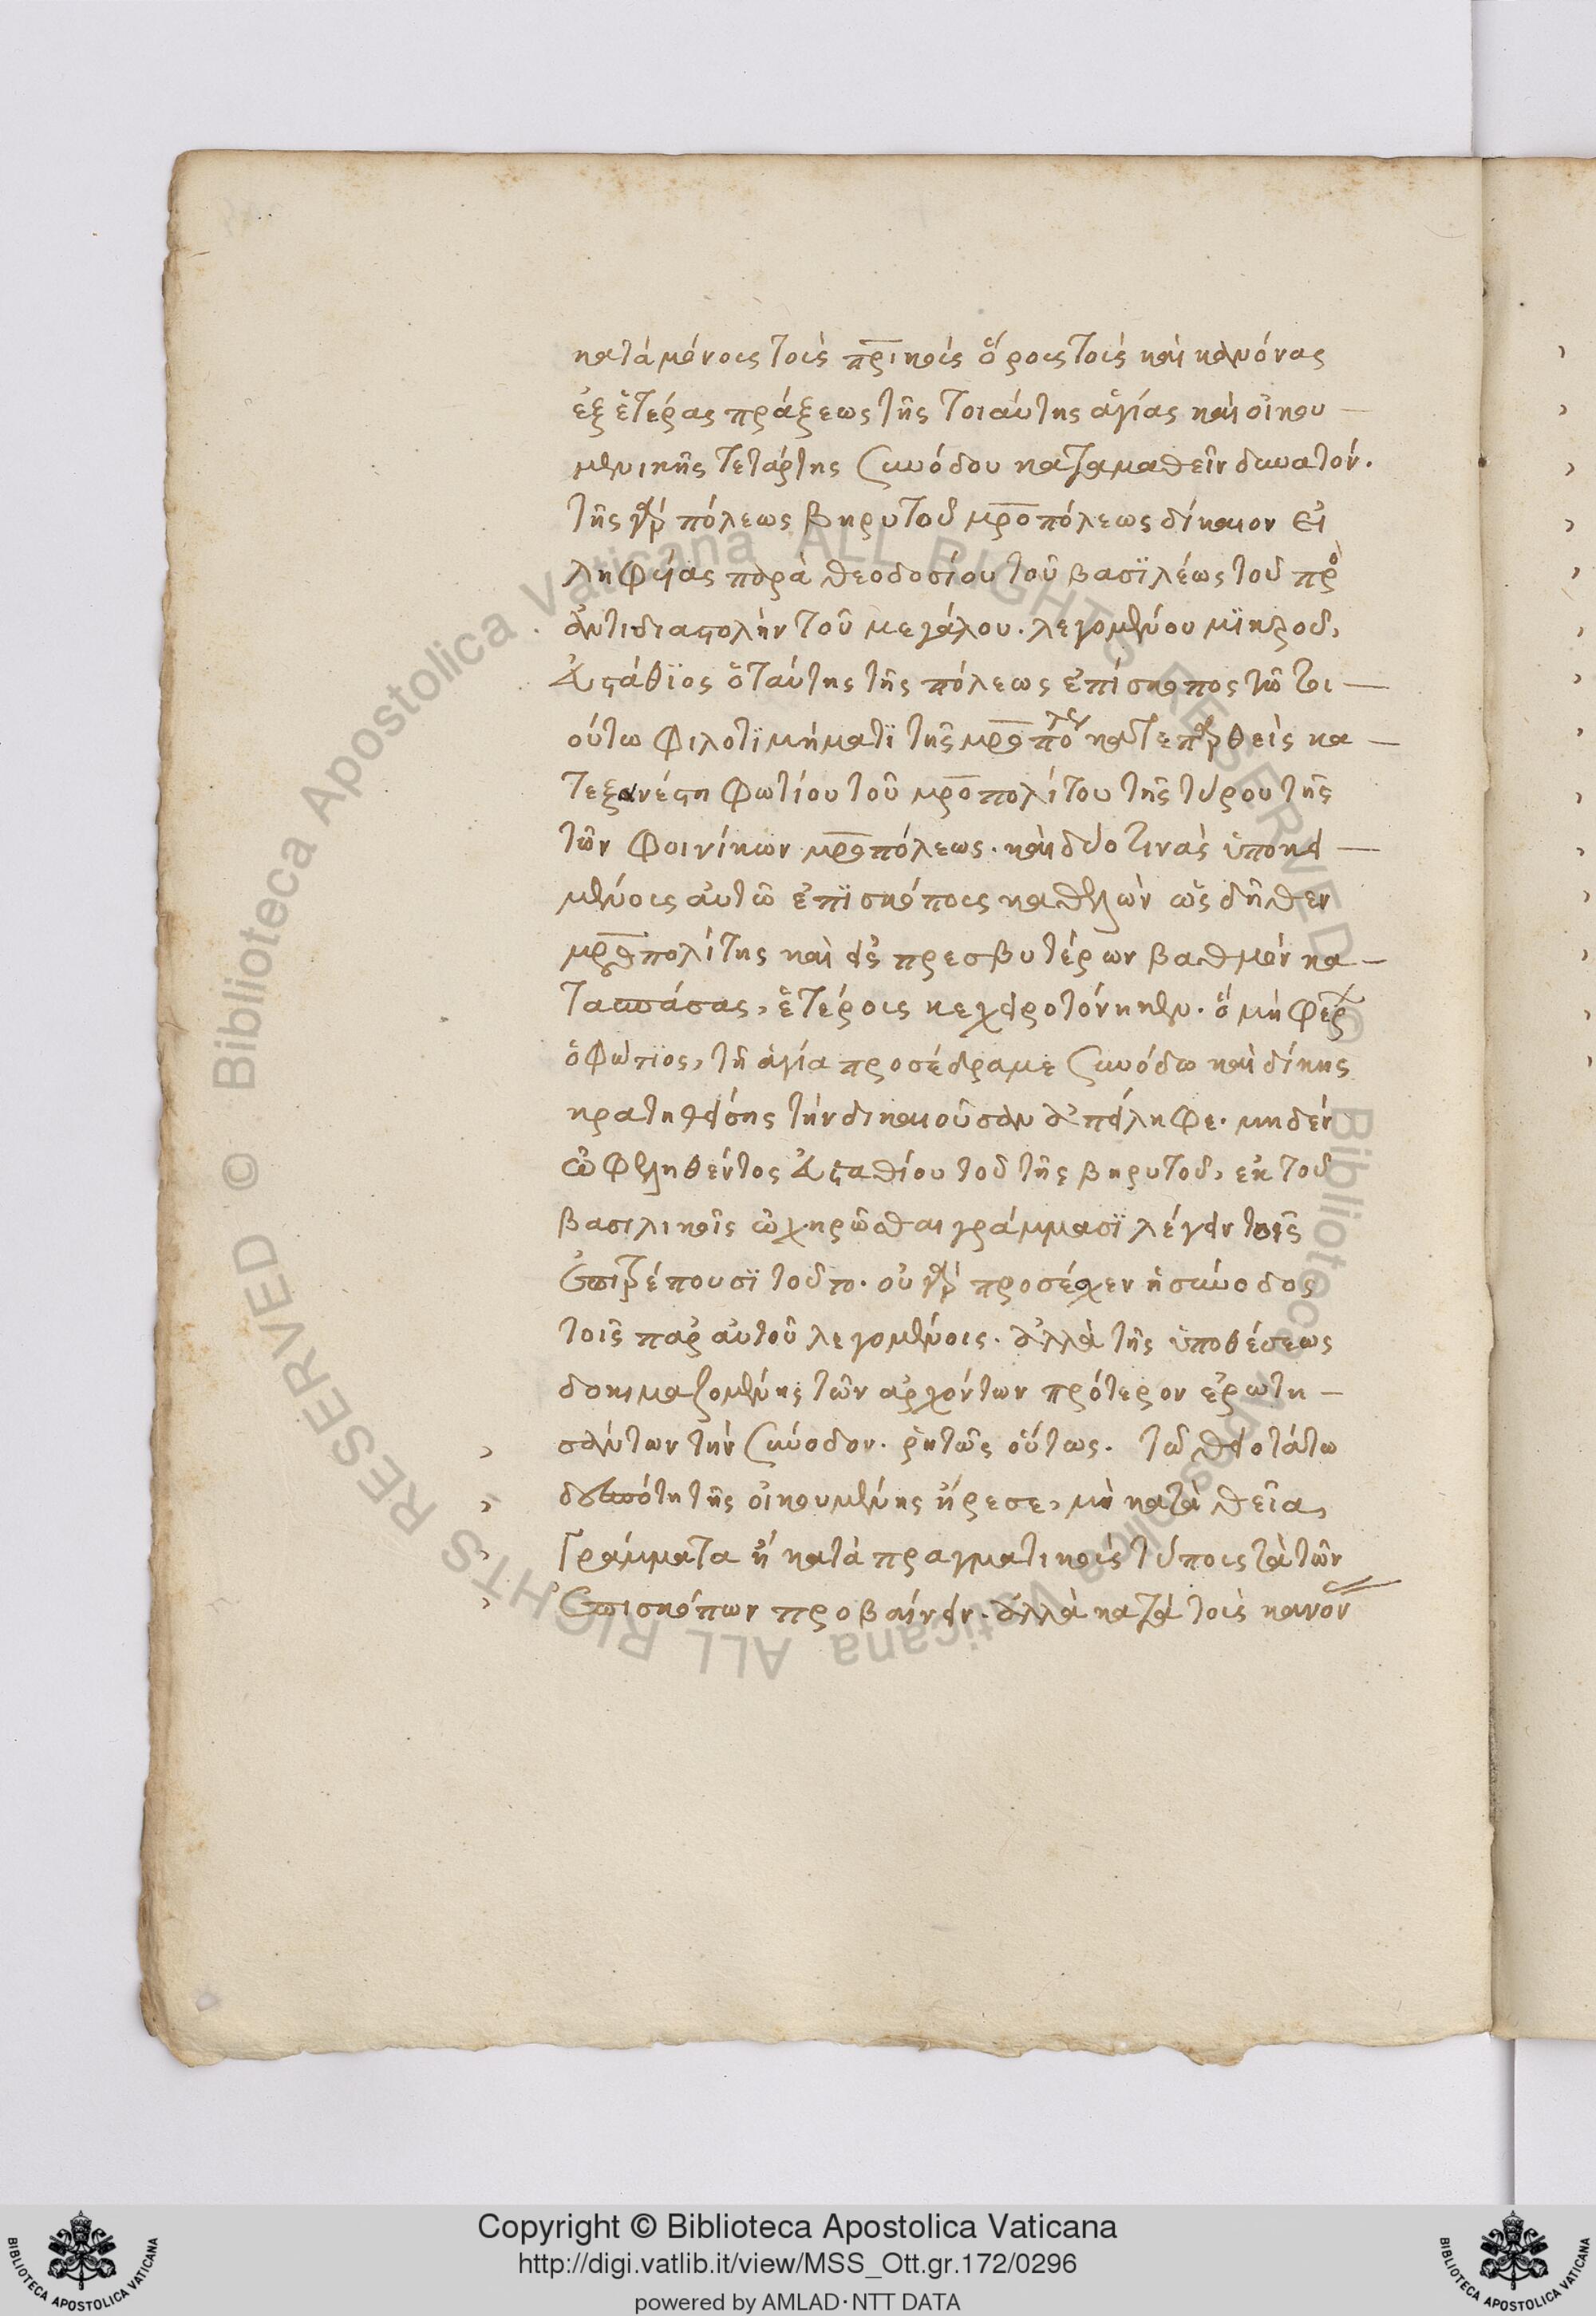 κατὰ μόνους τοὺς πρικοὺς ὅρους τοὺς καὶ κανόνας
ἐξ ἑτέρας πράξεως τῆς τοιαύτης ἁγίας καὶ οἰκου-
μενικῆς τετάρτης συνόδου καταμαθεῖν δυνατόν.
τῆς γὰρ πόλεως βηρυτοῦ μροπόλεως δίκαιον εἰ
ληφυίας παρὰ θεοδοσίου τοῦ βασϊλέως τοῦ πρὸ
ἀντιδιαστολὴν τοῦ μεγάλου. λεγομένου μϊκροῦ,
εὐστάθϊος ὁ ταύτης τῆς πόλεως ἐπίσκοπος τῷ τοι-
ούτω φιλοτϊμήματϊ τῆς μροπόλεως κατεπαρθεὶς κα-
τεξανέστη φωτίου τοῦ μροπολίτου τῆς τύρου τῆς
τῶν φοινίκων μροπόλεως. καὶ δύο τινὰς ὑποκει-
μένους αὐτῶ ἐπϊσκόπους καθελὼν ὡς δῆθεν
μροπολίτης καὶ εἰς πρεσβυτέρων βαθμὸν κα-
ταπάσας, ἑτέρους κεχειροτόνηκεν. ὃ μὴ φέρων
ὁ φώτϊος, τῆ ἁγία προσέδραμε συνόδω καὶ δίκης
κρατηθείσης τὴν δικαιοῦσαν ἀπείληφε. μηδὲν
ὠφεληθέντος εὐσταθίου τοῦ τῆς βηρυτοῦ, ἐκ τοῦ
βασιλικοῖς ὠχηρῶσθαι γράμμασϊ λέγειν τοῖς
ἐπιτρέπουσϊ τοῦτο. οὐ γὰρ προσέσχεν ἡ σύνοδος
τοῖς παρ αὐτοῦ λεγομένοις. ἀλλὰ τῆς ὑποθέσεως
δοκιμαζομένης τῶν ἀρχόντων πρότερον ἐρωτη-
σάντων τὴν σύνοδον. ῥητῶς οὕτως. τῶ θειοτάτω
δεσπότη τῆς οἰκουμένης ἤρεσε, μὴ κατὰ θεῖα,
γράμματα ἢ κατὰ πραγματικοὺς τύπους τὰ τῶν
ἐπισκόπων προβαίνειν. ἀλλὰ κατὰ τοὺς κανον
Copyright © Biblioteca Apostolica Vaticana
http://digi.vatlib.it/view/MSS_Ott.gr.172/0296
powered by AMLAD·NTT DATA